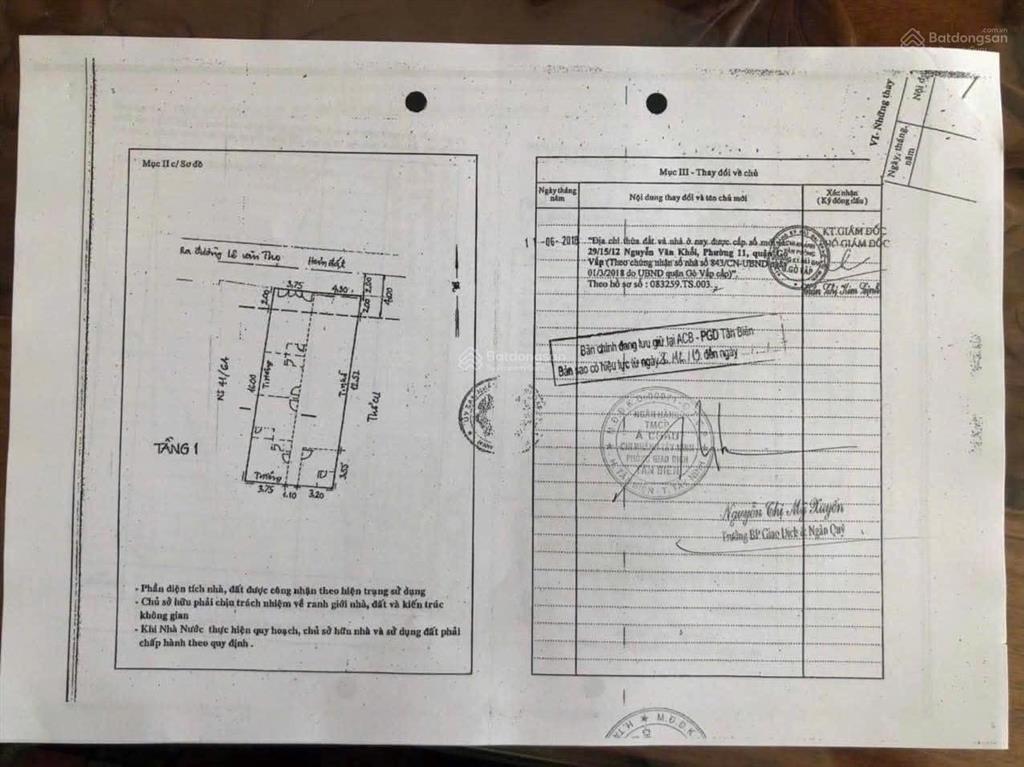 Batdongsan
.com.vn
VI- Những thay
Ngày, tháng, năm
Nội d
Mục II c/ Sơ đồ
Ra đường Lê Văn Thọ
Hẻm đất
3.75
4.30
2.00
2.00
2.00
4.00
Tường
16.00
12.52
Thổ cư
TẦNG 1
3.55
Tường
3.75
1.10
3.20
- Phần diện tích nhà, đất được công nhận theo hiện trạng sử dụng
- Chủ sở hữu phải chịu trách nhiệm về ranh giới nhà, đất và kiến trúc
không gian
- Khi Nhà Nước thực hiện quy hoạch, chủ sở hữu nhà và sử dụng đất phải
chấp hành theo quy định .
Mục III - Thay đổi về chủ
Ngày tháng
năm
Nội dung thay đổi và tên chủ mới
Xác nhận
(Ký đóng dấu)
11-06-2018
"Địa chỉ thửa đất và nhà ở nay được cấp số mới
29/15/12 Nguyễn Văn Khối, Phường 11, quận Gò
Vấp (Theo chứng nhận số nhà số 843/CN-UBND
01/3/2018 do UBND quận Gò Vấp cấp)".
Theo hồ sơ số : 083259.TS.003
KT.GIÁM ĐỐC
PHÓ GIÁM ĐỐC
GÒ VẤP
Bản chính đang lưu giữ tại ACB - PGD Tân Biên
Bản sao có hiệu lực từ ngày đến ngày
Batdongsan
NGÂN HÀNG
TMCP
Á CHÂU
CHI NHÁNH TÂY NINH
PHÒNG GIAO DỊCH
TÂN BIÊN
Nguyễn Thị Mỹ Xuyến
Trưởng BP Giao Dịch & Ngân Quỹ
M.Đ.D.K